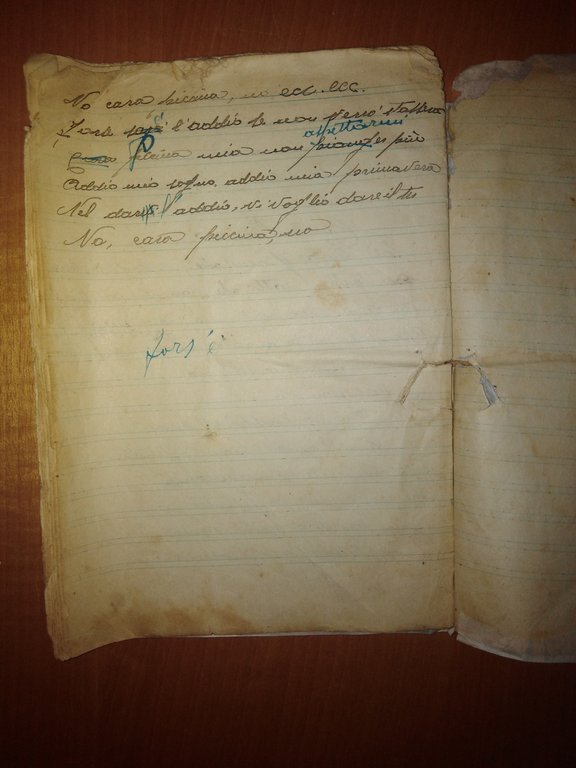 No cara piccina, no ecc. ecc.
Forse sarà è l'addio se non verrò stassera
Cara piccina mia non piangere più aspettarmi
Addio mio sogno, addio mia primavera
Nel darti l'addio, vi voglio dare il tu
No, cara piccina, no
fors'è